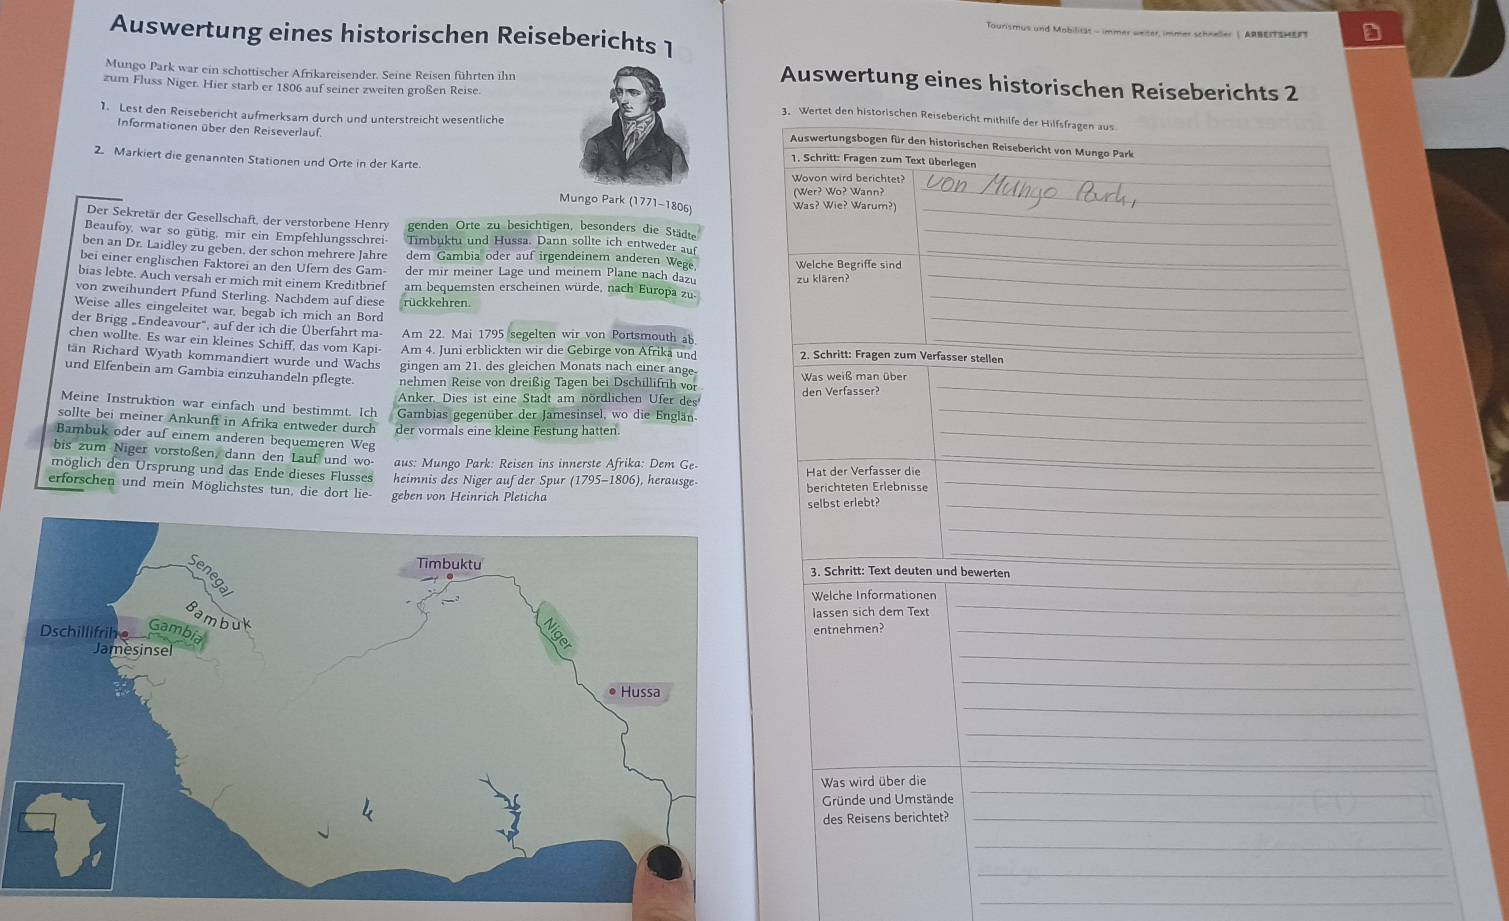 Auswertung eines historischen Reiseberichts 1
Mungo Park war ein schottischer Afrikareisender. Seine Reisen führten ihn
zum Fluss Niger. Hier starb er 1806 auf seiner zweiten großen Reise.
1. Lest den Reisebericht aufmerksam durch und unterstreicht wesentliche
Informationen über den Reiseverlauf.
2. Markiert die genannten Stationen und Orte in der Karte.
Mungo Park (1771–1806)
Der Sekretär der Gesellschaft, der verstorbene Henry
Beaufoy, war so gütig, mir ein Empfehlungsschrei-
ben an Dr. Laidley zu geben, der schon mehrere Jahre
bei einer englischen Faktorei an den Ufern des Gam-
bias lebte. Auch versah er mich mit einem Kreditbrief
von zweihundert Pfund Sterling. Nachdem auf diese
Weise alles eingeleitet war, begab ich mich an Bord
der Brigg „Endeavour", auf der ich die Überfahrt ma-
chen wollte. Es war ein kleines Schiff, das vom Kapi-
tän Richard Wyath kommandiert wurde und Wachs
und Elfenbein am Gambia einzuhandeln pflegte.
Meine Instruktion war einfach und bestimmt. Ich
sollte bei meiner Ankunft in Afrika entweder durch
Bambuk oder auf einem anderen bequemeren Weg
bis zum Niger vorstoßen, dann den Lauf und wo-
möglich den Ursprung und das Ende dieses Flusses
erforschen und mein Möglichstes tun, die dort lie-
genden Orte zu besichtigen, besonders die Städte
Timbuktu und Hussa. Dann sollte ich entweder auf
dem Gambia oder auf irgendeinem anderen Wege,
der mir meiner Lage und meinem Plane nach dazu
am bequemsten erscheinen würde, nach Europa zu-
rückkehren.
Am 22. Mai 1795 segelten wir von Portsmouth ab.
Am 4. Juni erblickten wir die Gebirge von Afrika und
gingen am 21. des gleichen Monats nach einer ange-
nehmen Reise von dreißig Tagen bei Dschillifrih vor
Anker. Dies ist eine Stadt am nördlichen Ufer des
Gambias gegenüber der Jamesinsel, wo die Englän-
der vormals eine kleine Festung hatten.
aus: Mungo Park: Reisen ins innerste Afrika: Dem Ge-
heimnis des Niger auf der Spur (1795–1806), herausge-
geben von Heinrich Pleticha
Senegal
Timbuktu
Bambuk
Dschillifrih
Gambia
Jamesinsel
Niger
Hussa
Tourismus und Mobilität – immer weiter, immer schneller | ARBEITSHEFT
Auswertung eines historischen Reiseberichts 2
3. Wertet den historischen Reisebericht mithilfe der Hilfsfragen aus.
Auswertungsbogen für den historischen Reisebericht von Mungo Park
1. Schritt: Fragen zum Text überlegen
Wovon wird berichtet?
(Wer? Wo? Wann?
Was? Wie? Warum?)
von Mungo Park,
Welche Begriffe sind
zu klären?
2. Schritt: Fragen zum Verfasser stellen
Was weiß man über
den Verfasser?
Hat der Verfasser die
berichteten Erlebnisse
selbst erlebt?
3. Schritt: Text deuten und bewerten
Welche Informationen
lassen sich dem Text
entnehmen?
Was wird über die
Gründe und Umstände
des Reisens berichtet?